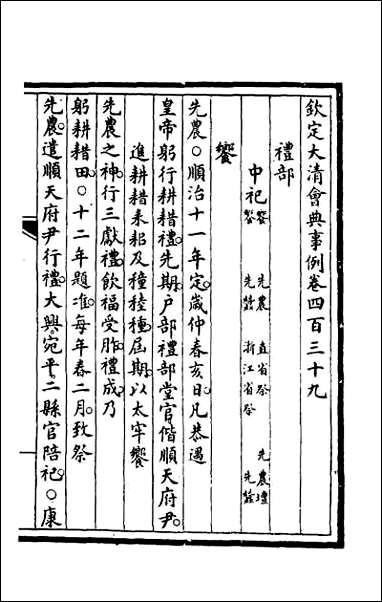 欽定大清會典事例卷四百三十九
禮部
中祀饗 先農 直省祭 先農壇
饗 先蠶 浙江省祭 先蠶
饗
先農○順治十一年定歲仲春亥日凡恭遇
皇帝躬行耕耤禮先期戶部禮部堂官偕順天府尹
進耕耤耒耜及穜稑種屆期以太牢饗
先農之神行三獻禮飲福受胙禮成乃
躬耕耤田○十二年題准每年春二月致祭
先農遣順天府尹行禮大興宛平二縣官陪祀○康